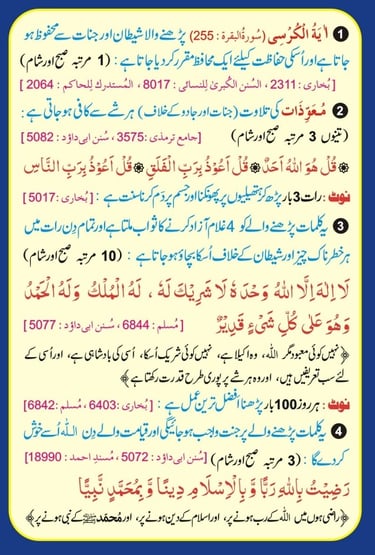 1 اٰيَةُ الْكُرْسِى (سُورۃُ البقرۃ : 255) پڑھنے والا شیطان اور جنات سے محفوظ ہو
جاتا ہے اور اُسکی حفاظت کیلئے ایک محافظ مقرر کر دیا جاتا ہے : (1 مرتبہ صبح اور شام)
[ بُخاری : 2311 ، السُنن الکُبریٰ لِلنسائی : 8017 ، المُستدرك لِلحاكم : 2064 ]
2 مُعَوّذَات کی تلاوت (جنات اور جادو کے خلاف) ہر شے سے کافی ہو جاتی ہے :
(تینوں 3 مرتبہ صبح اور شام) [جامع ترمذی : 3575، سُنن ابی داؤد : 5082]
قُلْ هُوَ اللّٰهُ اَحَدٌ ۞ قُلْ اَعُوْذُ بِرَبِّ الْفَلَقِ ۞ قُلْ اَعُوْذُ بِرَبِّ النَّاسِ
نوٹ : رات 3 بار پڑھ کر ہتھیلیوں پر پھونکنا اور جسم پر دَم کرنا سنت ہے : [بُخاری : 5017]
3 یہ کلمات پڑھنے والے کو 4 غلام آزاد کرنے کا ثواب ملتا ہے اور تمام دِن رات میں
ہر خطرناک چیز اور شیطان کے خلاف اُسکا بچاؤ ہو جاتا ہے : (10 مرتبہ صبح اور شام)
لَا اِلٰهَ اِلَّا اللّٰهُ وَحْدَهٗ لَا شَرِيْكَ لَهٗ ، لَهُ الْمُلْكُ وَلَهُ الْحَمْدُ
وَهُوَ عَلٰى كُلِّ شَىْءٍ قَدِيْرٌ [ مُسلم : 6844 ، سُنن ابی داؤد : 5077 ]
﴿نہیں کوئی معبود مگر اللہ، وہ اکیلا ہے، نہیں کوئی شریک اُسکا، اُسی کی بادشاہی ہے، اور اُسی کے
لئے سب تعریفیں ہیں، اور وہ ہر شے پر پوری طرح قدرت رکھتا ہے﴾
نوٹ : ہر روز 100 بار پڑھنا افضل ترین عمل ہے : [ بُخاری : 6403، مُسلم : 6842]
4 یہ کلمات پڑھنے والے پر جنت واجب ہو جائیگی اور قیامت والے دِن اللہ اُسے خوش
کر دے گا : (3 مرتبہ صبح اور شام) [سُنن ابی داؤد : 5072 ، مُسندِ احمد : 18990]
رَضِيْتُ بِاللّٰهِ رَبًّا وَّ بِالْاِسْلَامِ دِيْنًا وَّ بِمُحَمَّدٍ نَّبِيًّا
﴿راضی ہوں میں اللہ کے رب ہونے پر، اور اسلام کے دین ہونے پر، اور مُحمّد ﷺ کے نبی ہونے پر﴾